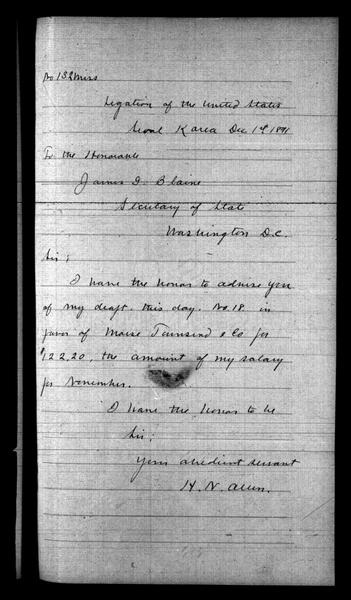 No 132 Miss
Legation of the United States
Seoul Korea Dec 1st 1891
To the Honorable
James G. Blaine
Secretary of State
Washington D.C.
Sir;
I have the honor to advise you
of my draft, this day, No. 18. in
favor of Morse Townsend & Co for
$122.20, the amount of my salary
for November.
I have the honor to be
Sir;
Your obedient servant
H. N. Allen.